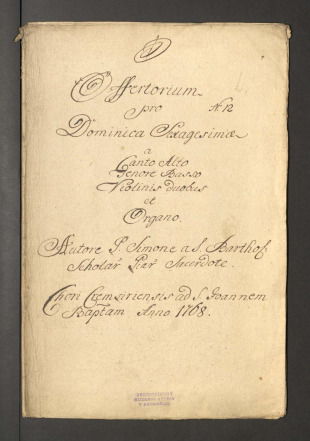 Offertorium
pro No 12
Dominica Sexagesimæ
a
Canto Alto
Tenore Basso
Violinis duobus
et
Organo.
Autore P. Simone a S. Barthol.
Scholar Piar Sacerdote.
Chori Cremsiriensis ad S. Joannem
Baptam Anno 1768.